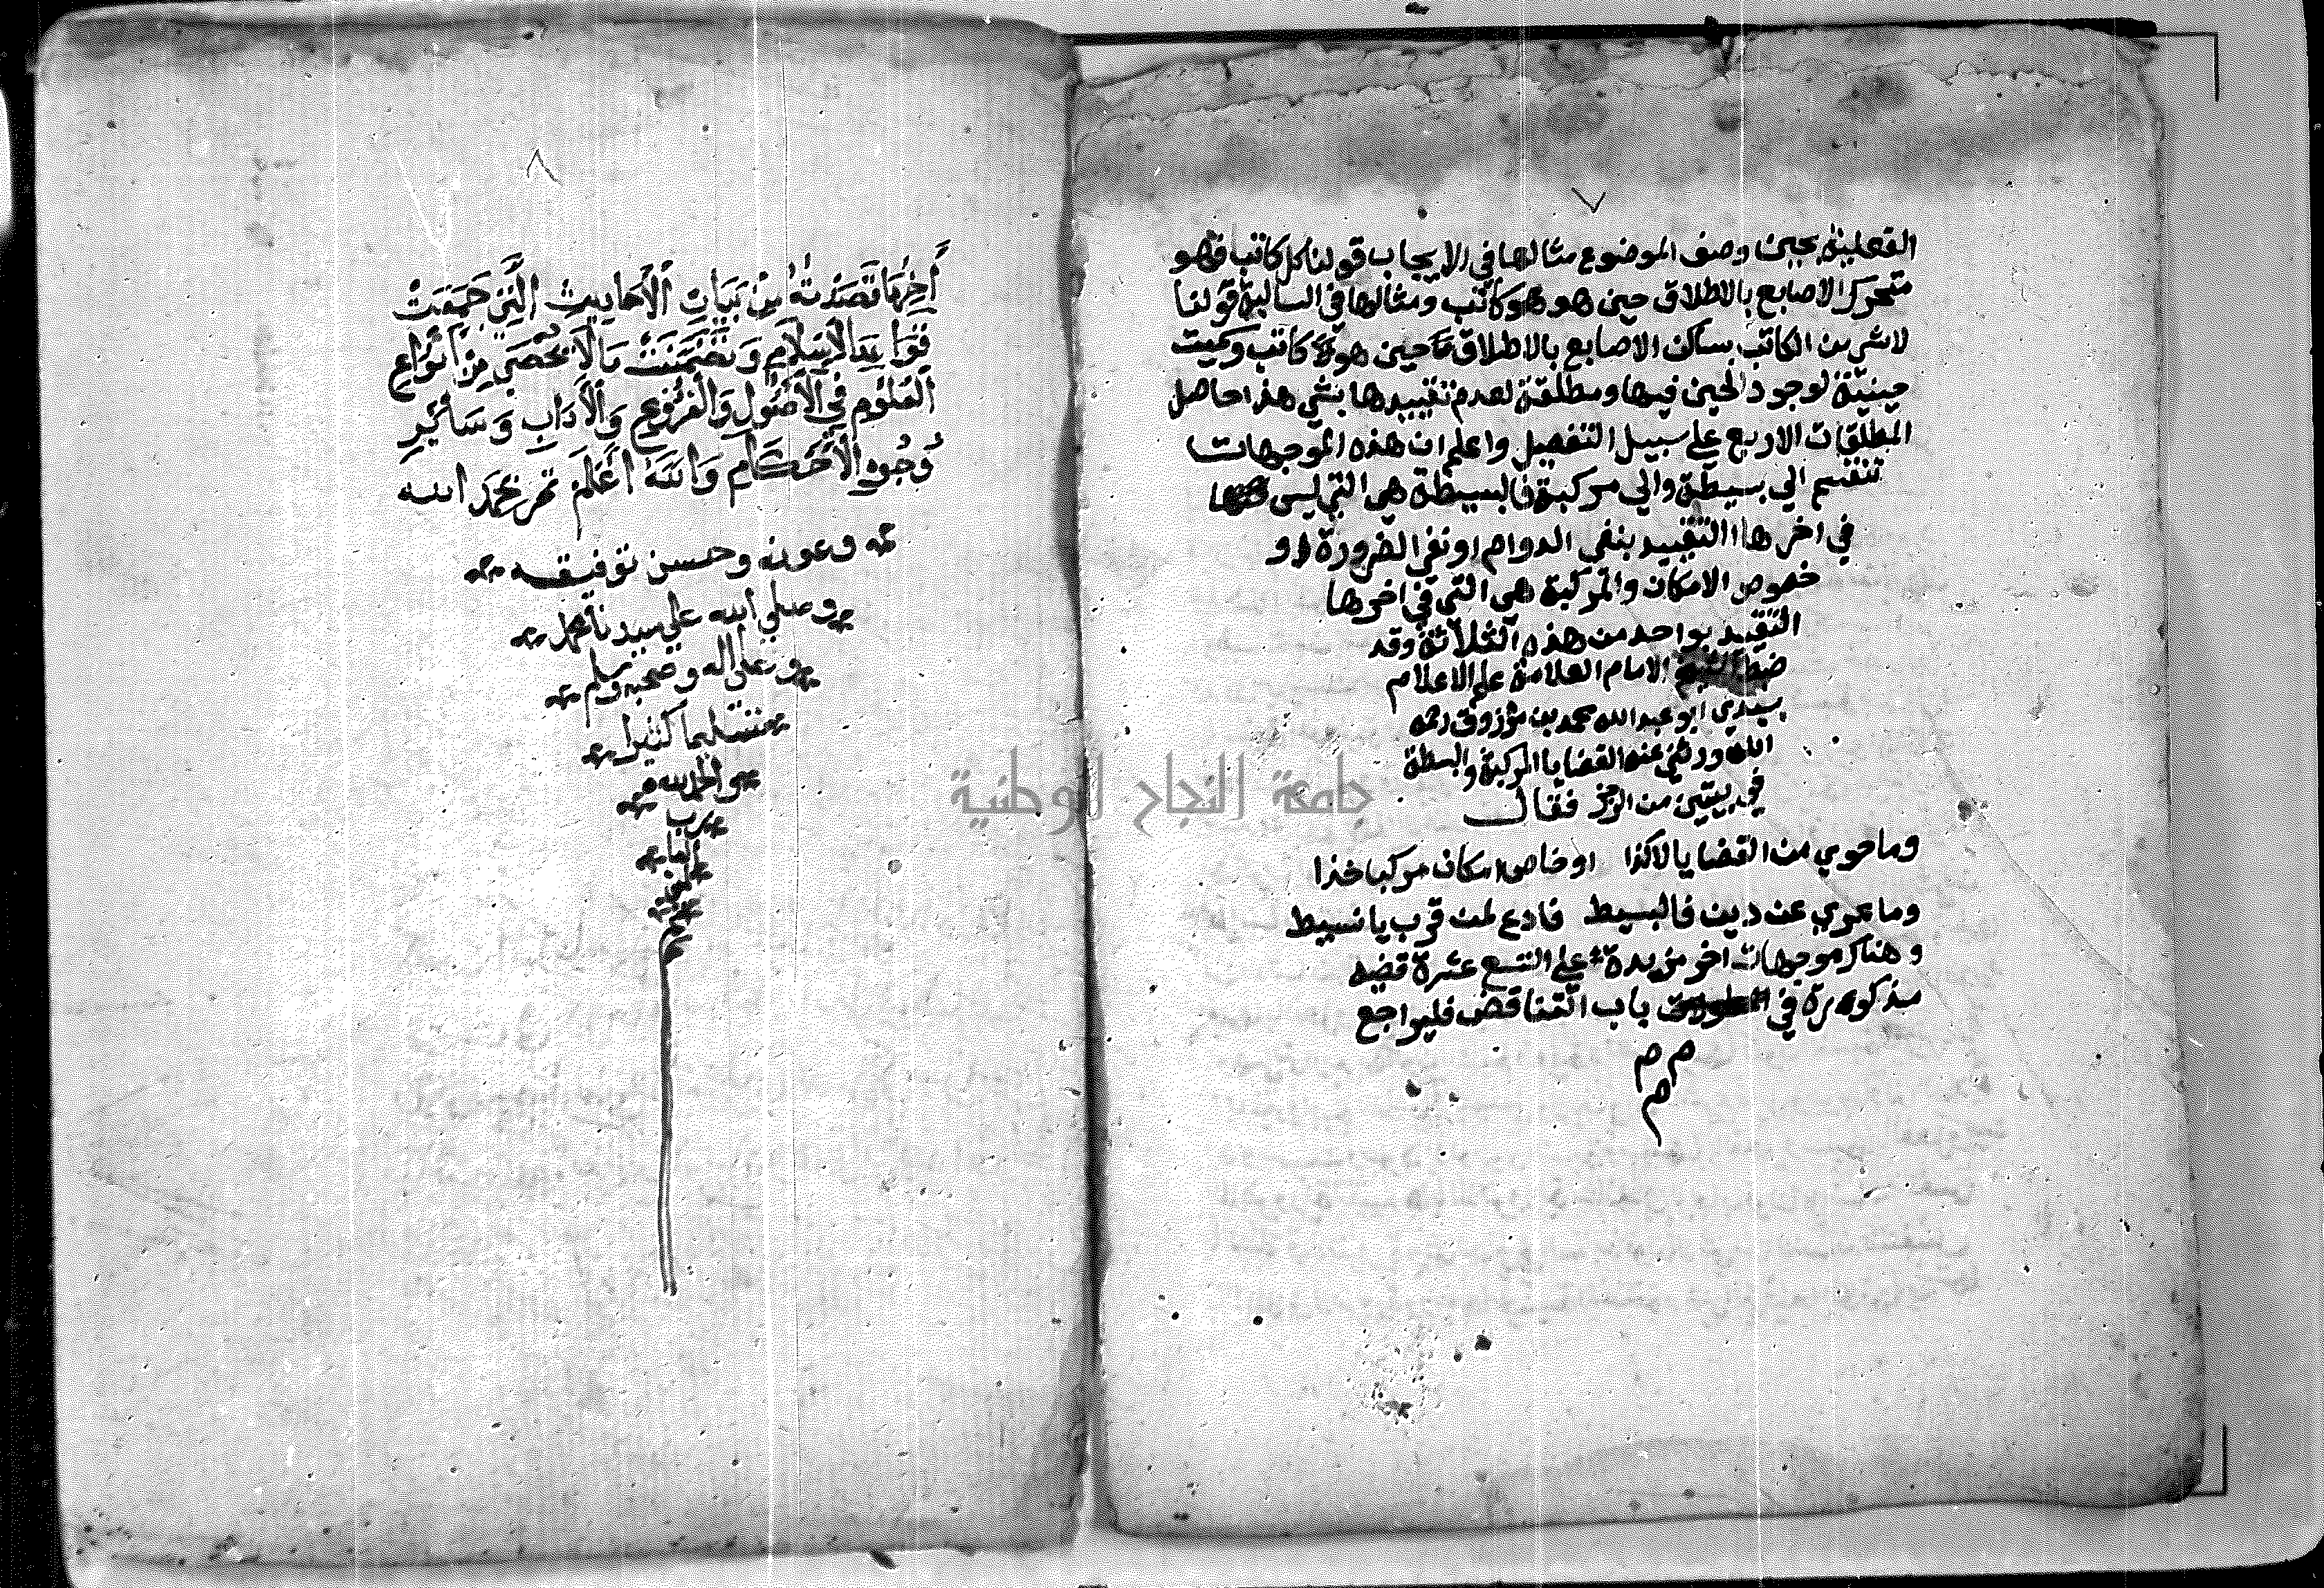 ٧
الفعلية بحين وصف الموضوع مثالها في الايجاب قولنا كل كاتب فهو
متحرك الاصابع بالاطلاق حين هو كاتب ومثالها في السالبة قولنا
لا شي من الكاتب بساكن الاصابع بالاطلاق حين هو كاتب وسميت
حينيّة لوجود الحين فيها ومطلقة لعدم تقييدها بشي هذا حاصل
المطلقات الاربع علي سبيل التفصيل واعلم ان هذه الموجهات
تنقسم الي بسيطة والي مركبة فالبسيطة هي التي ليس
في اخرها التقييد بنفي الدوام او نفي الضرورة او
خصوص الامكان والمركبة هي التي في اخرها
التقييد بواحد من هذه الثلاثة وقد
ضبط الامام العلامة علم الاعلام
سيدي ابو عبد الله محمد بن مرزوق رحمه
الله ورضي عنه القضايا المركبة والبسطة
في بيتين من الرجز فقال
وما حوي من القضايا لا كذا او خاص امكان مركبا خذا
وما عري عن دين فالبسيط فادع لمن قرب يا نسيط
وهناك موجهات اخر مزيدة علي التسع عشرة قضيه
مذكورة في باب التناقض فليراجع
م م
م
٨
أخرها قصدته من بيان الأحاديث التي جمعت
قواعد الإسلام وتضمنت ما لا يحصي من أنواع
العلوم في الأصول والفروع والآداب وسائر
وجوه الأحكام والله أعلم تم بحمد الله
وعونه وحسن توفيقه
وصلي الله علي سيدنا محمد
وعلي اله وصحبه وسلم
تسليما كثيرا
والحمد لله
رب
العا
لمين
جامعة النجاح الوطنية